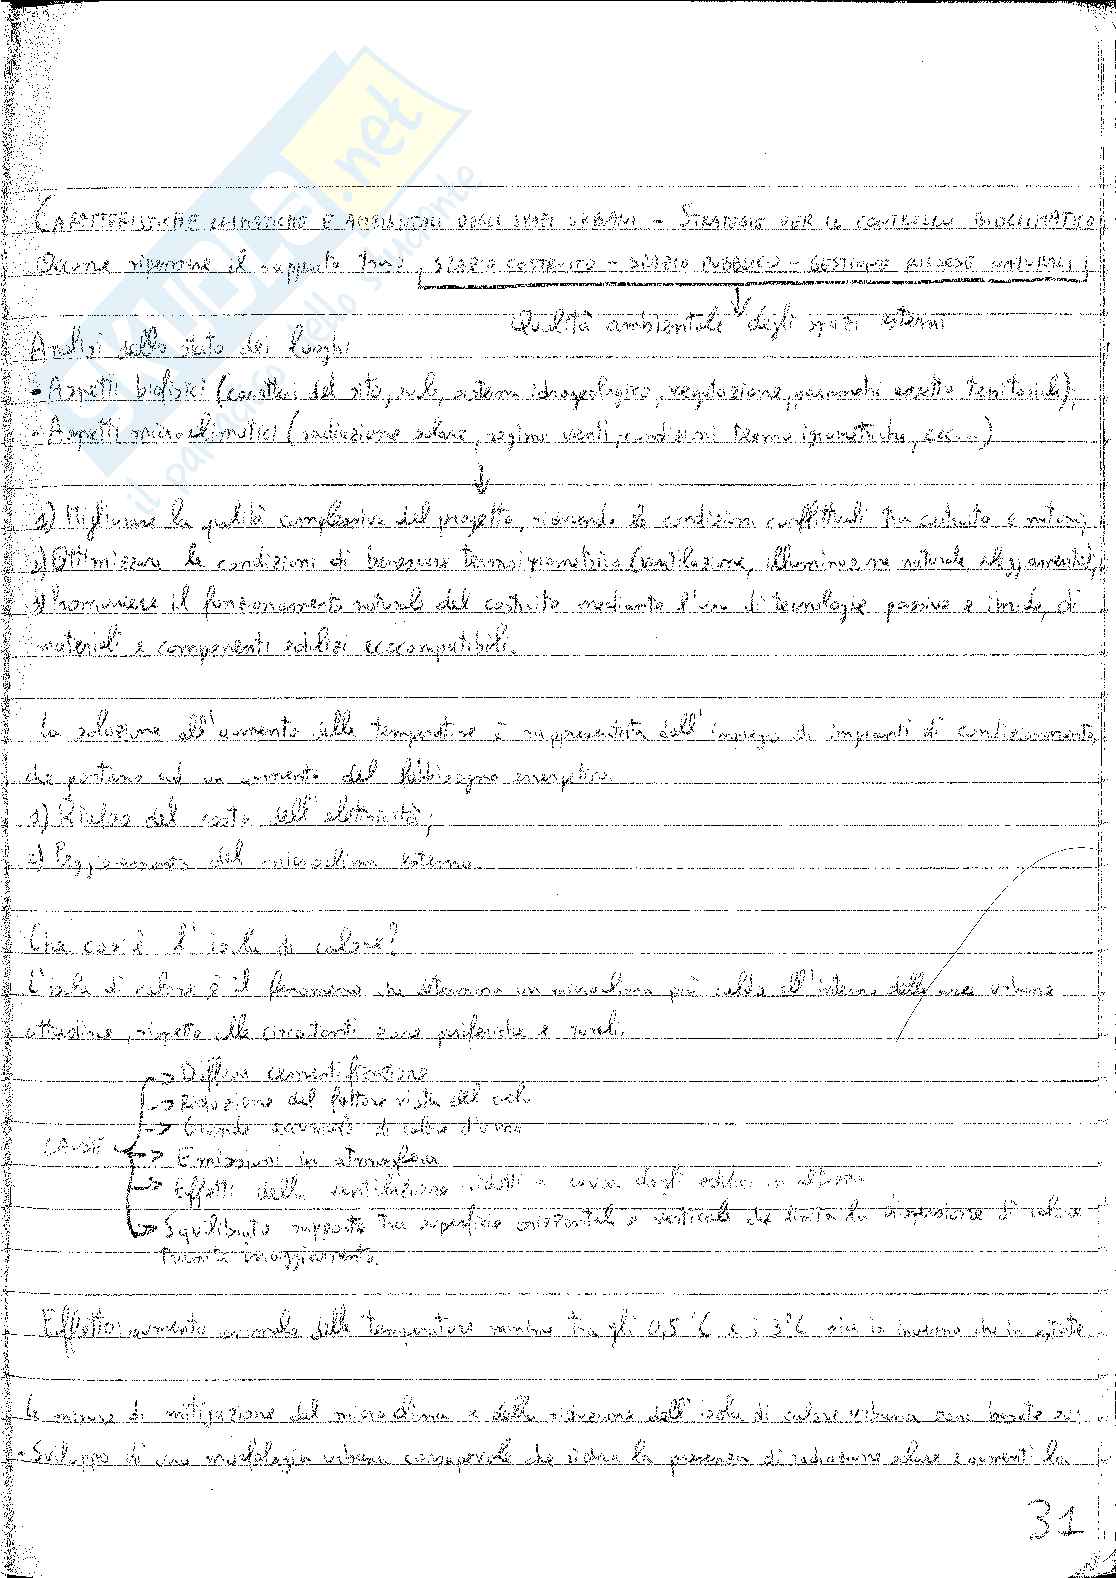 SKUOLA.net
il paradiso dello studente
CARATTERISTICHE CLIMATICHE E AMBIENTALI DEGLI SPAZI URBANI - STRATEGIE PER IL CONTROLLO BIOCLIMATICO
Occorre ripensare il rapporto tra: SPAZIO COSTRUITO - SPAZIO PUBBLICO - GESTIONE RISORSE NATURALI;
Qualità ambientale degli spazi esterni
Analisi dello stato dei luoghi
- Aspetti biofisici (caratteri del sito, suolo, sistema idrogeologico, vegetazione, parametri assetto territoriale);
- Aspetti microclimatici (radiazione solare, regime venti, condizioni termo igrometriche, ecc...)
a) Migliorare la qualità complessiva del progetto, riducendo le condizioni conflittuali tra costruito e natura;
Ottimizzare le condizioni di benessere termoigrometrico (ventilazione, illuminazione naturale,
Promuovere il funzionamento naturale del costruito mediante l'uso di tecnologie passive e ibride, di
materiali e componenti edilizi ecocompatibili.
La soluzione all'aumento delle temperature è rappresentata dall'impiego di impianti di condizionamento,
che portano ad un aumento del fabbisogno energetico.
a) Rialzo del costo dell'elettricità;
Peggioramento del microclima esterno.
Che cos'è l'isola di calore?
L'isola di calore è il fenomeno che determina un microclima più caldo all'interno delle aree urbane
cittadine, rispetto alle circostanti zone periferiche e rurali.
CAUSE
-> Diffusa cementificazione
-> Riduzione del fattore vista del cielo
-> Grande accumulo di calore d'uso
-> Emissioni in atmosfera
-> Effetti della ventilazione ridotti a causa degli edifici in altezza
-> Squilibrato rapporto tra superficie orizzontale e verticale che limita la dispersione di calore
tramite irraggiamento.
Effetto: aumento in media delle temperature minime tra gli 0,5 °C e i 3°C sia in inverno che in estate.
Le misure di mitigazione del microclima e della riduzione dell'isola di calore urbana sono basate su:
- Sviluppo di una morfologia urbana consapevole che riduca la presenza di radiazione solare e aumenti la
31